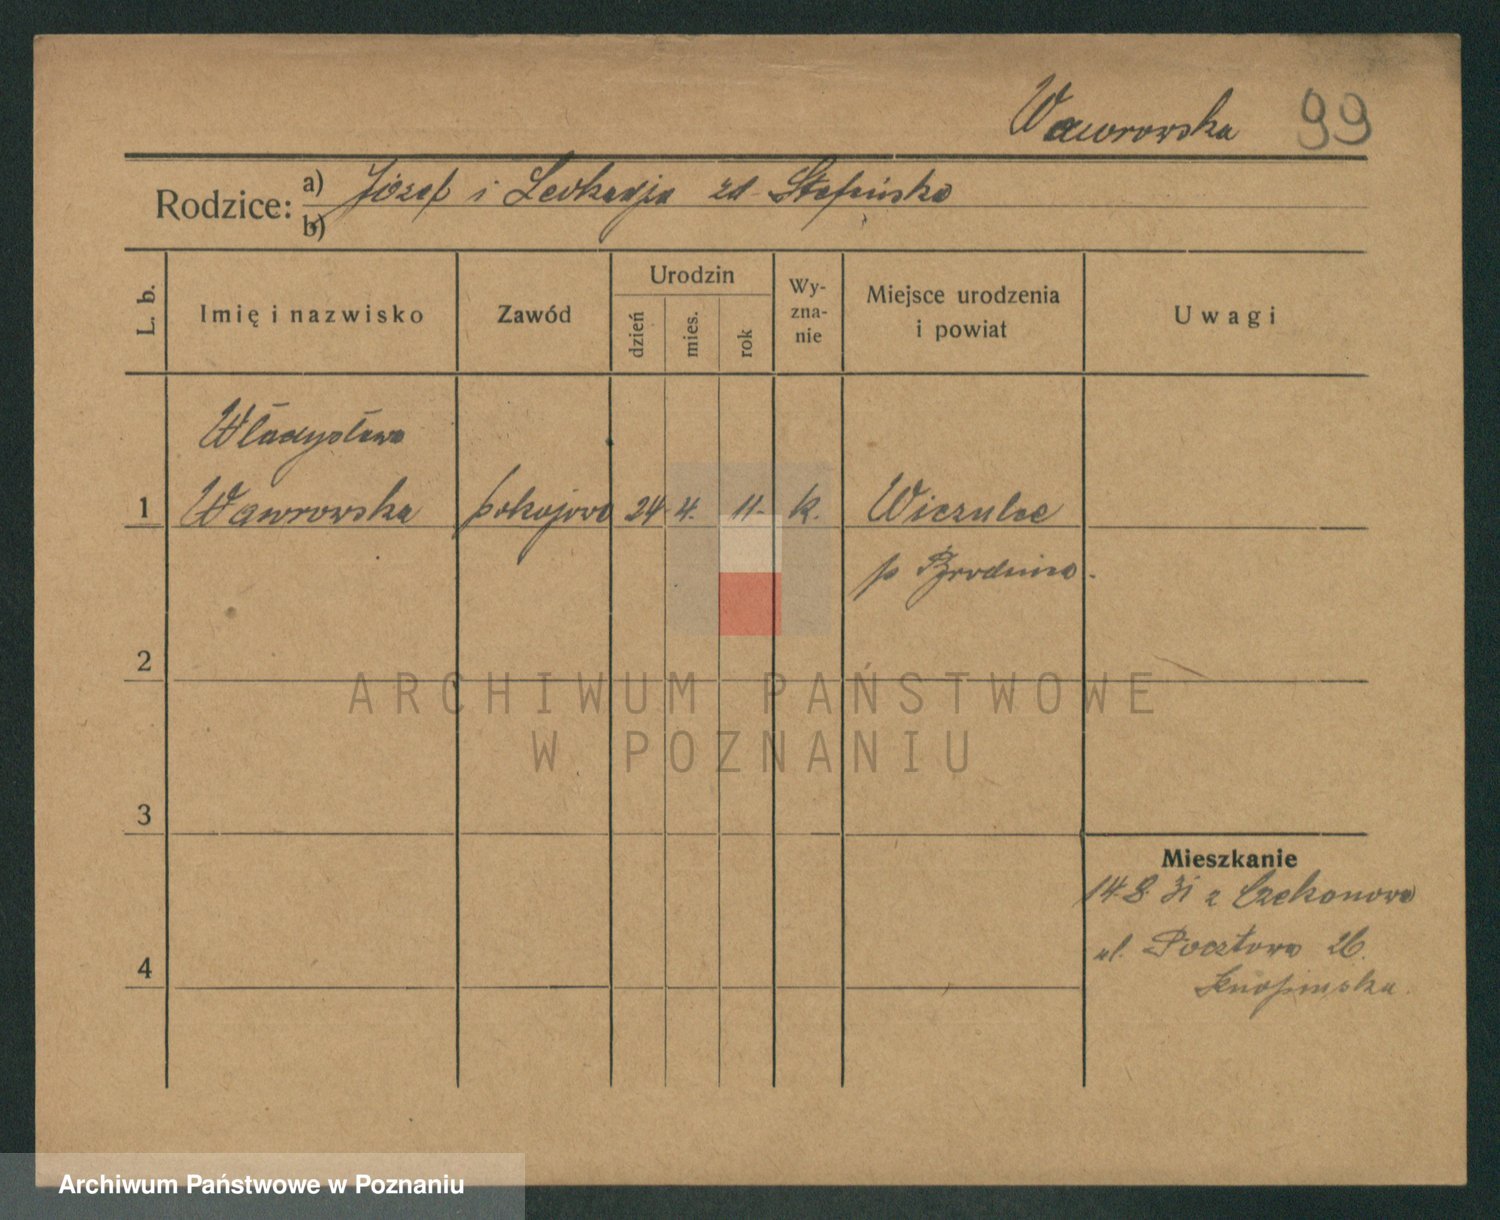 Waworowska 99
Rodzice: a) Józef i Leokadja zd. Stefańska
b)
L. b.
Imię i nazwisko
Zawód
Urodzin
dzień
mies.
rok
Wy-
zna-
nie
Miejsce urodzenia
i powiat
Uwagi
Władysława
1 Wawrowska pokojowa 24 4. 11. k.
p Brodnica.
2
ARCHIWUM PAŃSTWOWE
W POZNANIU
3
Mieszkanie
14.8.31 z Czekanowa
ul. Pocztowa 26.
4
Archiwum Państwowe w Poznaniu